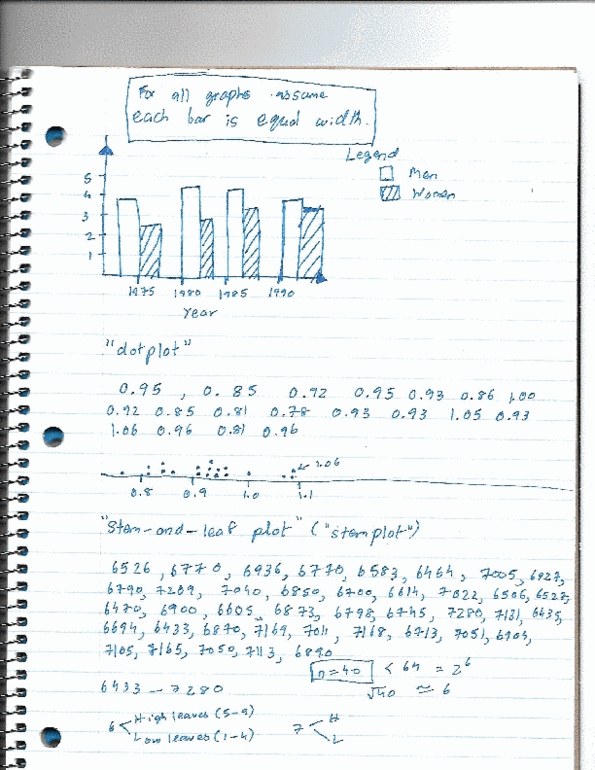 For all graphs assume
each bar is equal width.
Legend
Men
Women
5
4
3
2
1
1975 1980 1985 1990
Year
"dotplot"
0.95 , 0.85 0.92 0.95 0.93 0.86 1.00
0.92 0.85 0.81 0.78 0.93 0.93 1.05 0.93
1.06 0.96 0.81 0.96
1.06
0.8 0.9 1.0 1.1
"Stem-and-leaf plot" ("stemplot")
6526, 6770, 6936, 6770, 6583, 6464, 7005, 6927,
6790, 7209, 7040, 6850, 6700, 6614, 7022, 6506, 6527,
6470, 6900, 6605, 6873, 6798, 6745, 7280, 7131, 6435,
6694, 6433, 6870, 7169, 7011, 7168, 6713, 7051, 6904,
7105, 7165, 7050, 7113, 6890
n=40 < 64 = 2^6
6433 - 7280 √40 ≈ 6
6 High leaves (5-9) 7 H
Low leaves (1-4) L